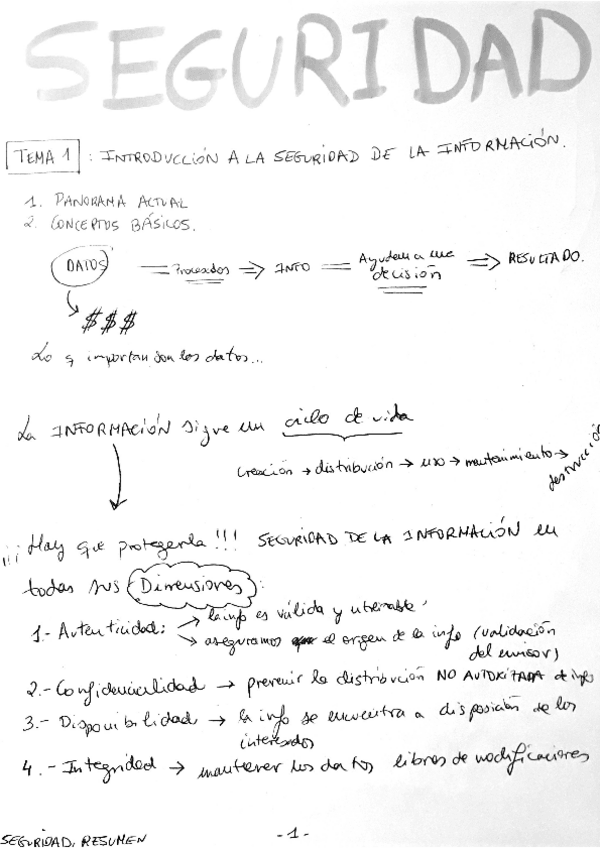 SEGURIDAD
TEMA 1 : INTRODUCCIÓN A LA SEGURIDAD DE LA INFORMACIÓN.
1. PANORAMA ACTUAL
2. CONCEPTOS BÁSICOS.
DATOS = Procesados => INFO = Ayudan a una decisión => RESULTADO.
$$$
Lo q importan son los datos...
La INFORMACIÓN sigue un ciclo de vida
creación → distribución → uso → mantenimiento → destrucción
¡¡¡ Hay que protegerla !!! SEGURIDAD DE LA INFORMACIÓN en
todas sus Dimensiones :
1.- Autenticidad: → la info es válida y
→ aseguramos el origen de la info (validación
del emisor)
2.- Confidencialidad → prevenir la distribución NO AUTORIZADA de info
3.- Disponibilidad → la info se encuentra a disposición de los
interesados
4.- Integridad → mantener los datos libres de modificaciones
SEGURIDAD, RESUMEN
- 1 -